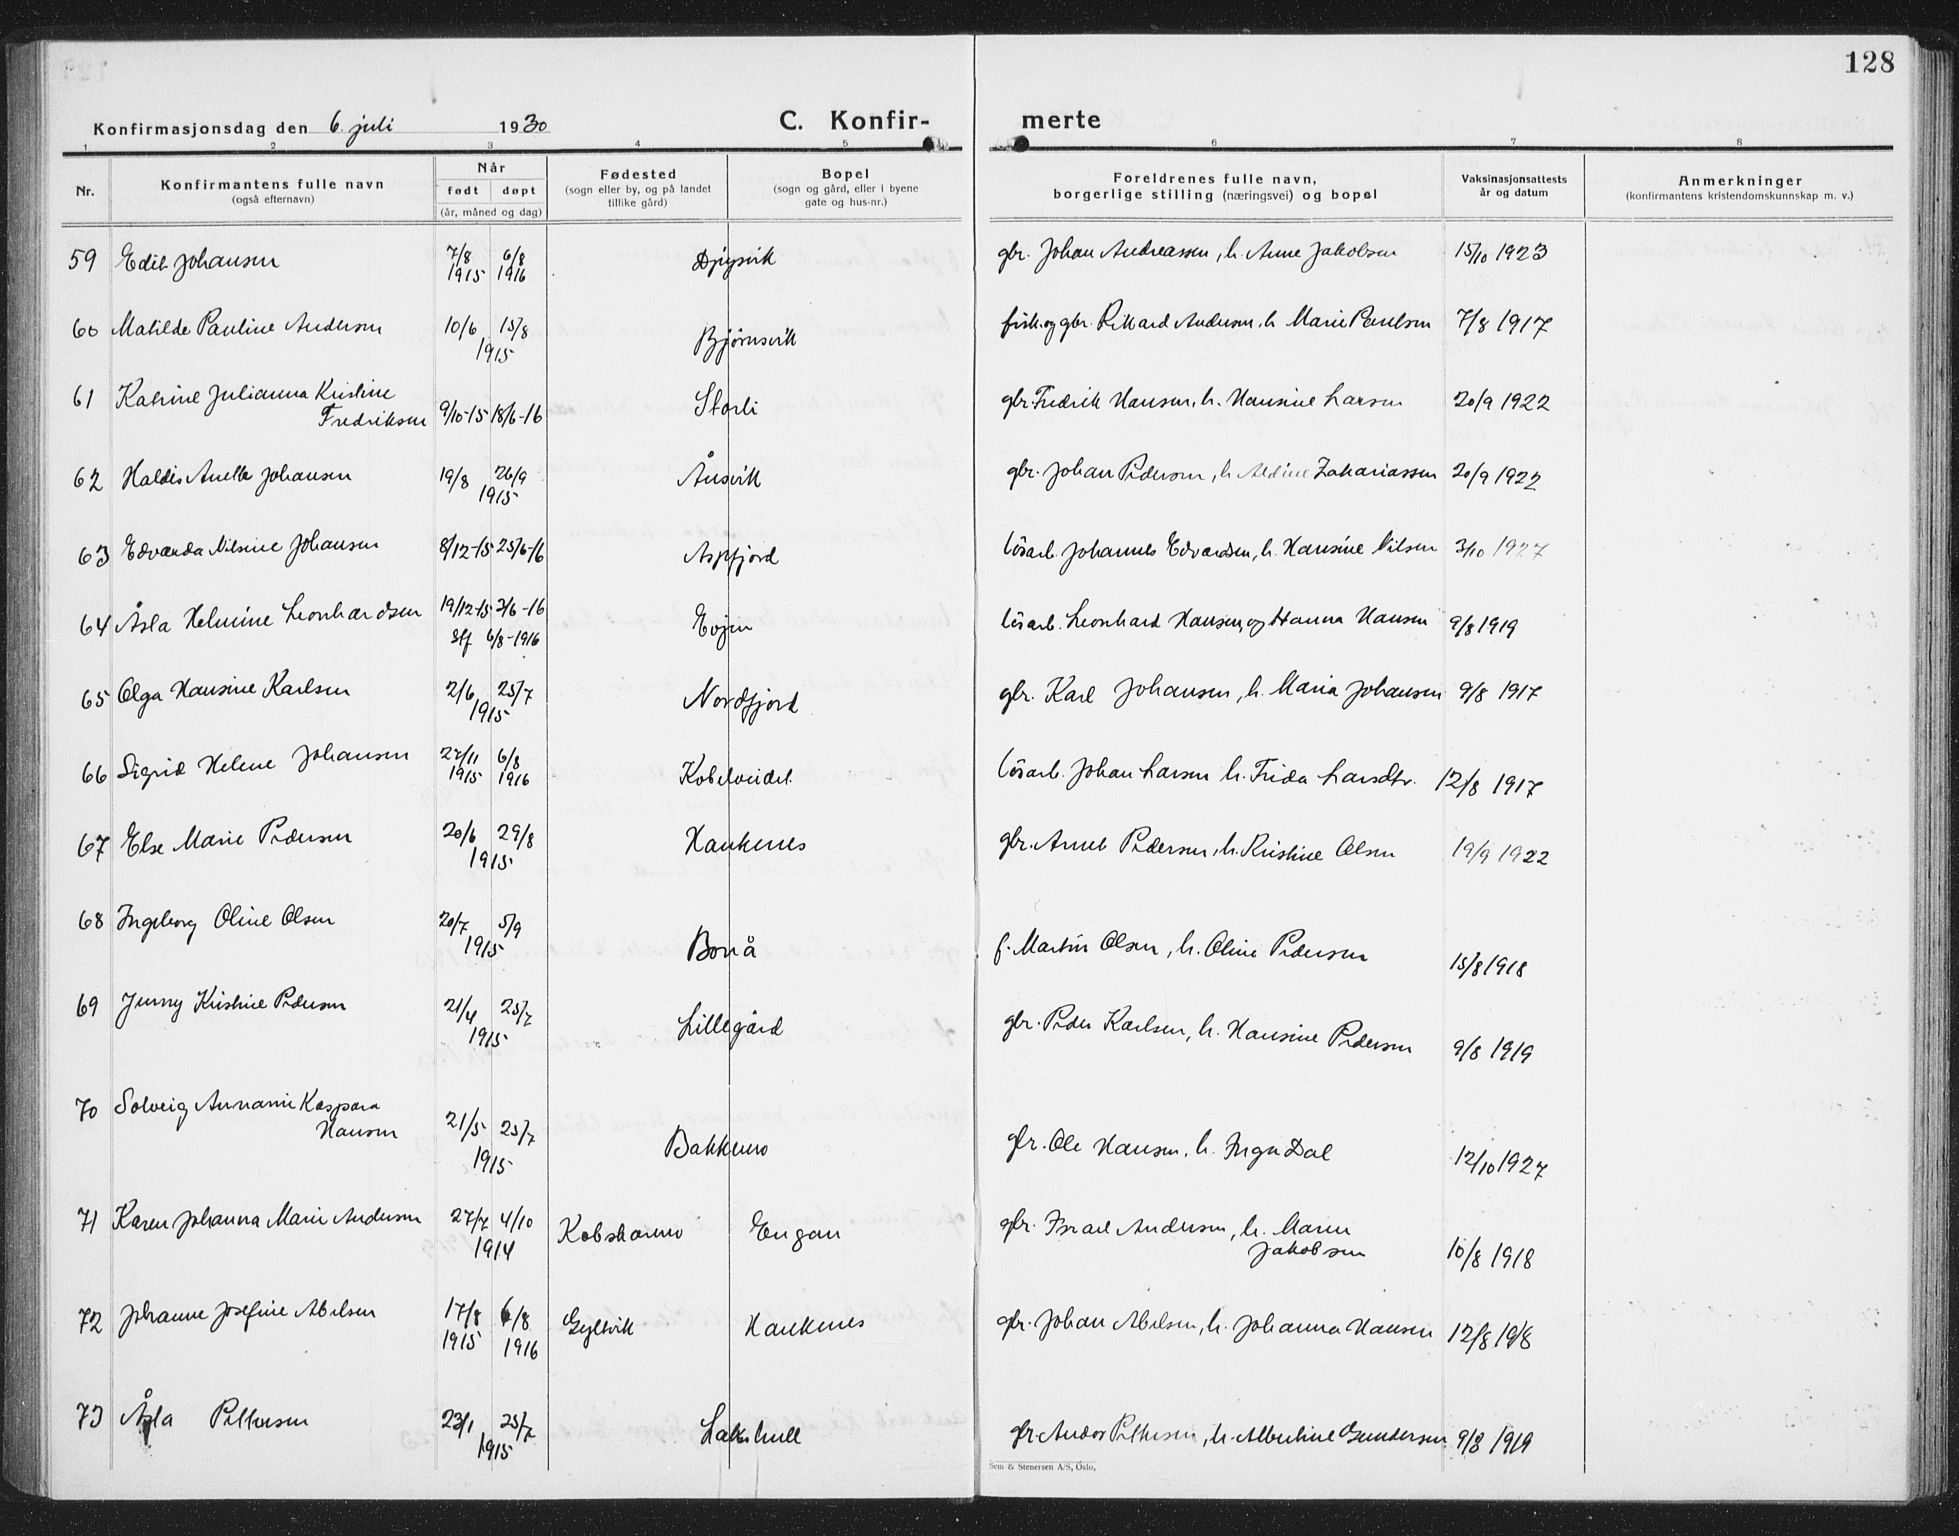 128
Konfirmasjonsdag den 6. juli 1930
C. Konfir-
merte
1 2 3 4 5 6 7 8
Nr.
Konfirmantens fulle navn
(også efternavn)
Når
født døpt
(år, måned og dag)
Fødested
(sogn eller by, og på landet
tillike gård)
Bopel
(sogn og gård, eller i byene
gate og hus-nr.)
Foreldrenes fulle navn,
borgerlige stilling (næringsvei) og bopel
Vaksinasjonsattests
år og datum
Anmerkninger
(konfirmantens kristendomskunnskap m. v.)
59 Edit Johansen 7/8 1915 6/8 1916 Djupvik gbr. Johan Andreassen, h. Anne Jakobsen 15/10 1923
60 Matilde Pauline Andersen 10/6 15/8 1915 Bjørnsvik fisk. og gbr. Rikard Andersen, h. Marie Paulsen 7/8 1917
61 Katrine Julianna Kristine
Fredriksen 9/10-15 18/6-16 Storli gbr. Fredrik Hansen, h. Hansine Larsen 20/9 1922
62 Haldis Anette Johansen 19/8 26/9 1915 Ånsvik gbr. Johan Pedersen, h. Aldine Zakariassen 20/9 1922
63 Edvarda Nilsine Johansen 8/12-15 25/6-16 Aspfjord løsarb. Johannes Edvardsen, h. Hansine Nilsen 3/10 1927
64 Åsla Helmine Leonhardsen 19/12-15 2/6-16
stf 6/8-1916 Evjen løsarb. Leonhard Hansen, og Hanna Hansen 9/8 1919
65 Olga Hansine Karlsen 2/6 25/7 1915 Nordfjord gbr. Karl Johansen, h. Maria Johansen 9/8 1917
66 Sigrid Helene Johansen 27/11 1915 6/8 1916 Kobelveidet løsarb. Johan Larsen h. Frida Larsdtr. 12/8 1917
67 Else Marie Pedersen 20/6 29/8 1915 Haukenes gbr. Arnet Pedersen, h. Kristine Olsen 19/9 1922
68 Ingeborg Oline Olsen 20/7 5/9 1915 Bonå f. Martin Olsen, h. Oline Pedersen 15/8 1918
69 Jenny Kristine Pedersen 21/4 25/7 1915 Lillegård gbr. Peder Karlsen, h. Hansine Pedersen 9/8 1919
70 Solveig Annanie Kaspara
Hansen 21/5 25/7 1915 Bakkemo gbr. Ole Hansen, h. Inga Dal 12/10 1927
71 Karen Johanna Marie Andersen 27/7 4/10 1914 Kobskarmo Engan gbr. Israel Andersen, h. Maren
Jakobsen 10/8 1918
72 Johanne Josefine Abelsen 17/8 1915 6/8 1916 Gyltvik Haukenes gbr. Johan Abelsen, h. Johanna Hansen 12/8 1918
73 Åsla Pettersen 23/1 25/7 1915 Lakshull gbr. Andor Pettersen, h. Albertine Gundersen 9/8 1919
Sem & Stenersen A/S, Oslo.